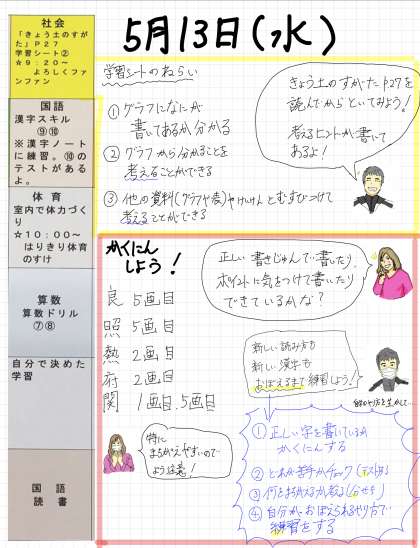 社会
「きょう土のすが
た」P27
学習シート②
☆９：２０～
よろしくファ
ンファン
国語
漢字スキル
⑨⑩
※漢字ノート
に練習。⑩の
テストがある
よ。
体育
室内で体力づく
り
☆１０：００～
はりきり体育
のすけ
算数
算数ドリル
⑦⑧
自分で決めた
学習
国語
読書
5月13日(水)
学習シートのねらい
① グラフになにが
書いてあるか分かる
② グラフから分かることを
考えることができる
③ 他の資料(グラフや表)やけいけんとむすびつけて
考えることができる
きょう土のすがたP27を
読んでからといてみよう!
考えるヒントが書いて
あるよ!
かくにん
しよう!
良 5画目
照 5画目
熱 2画目
府 2画目
関 1画目.5画目
正しい書きじゅんで書いたり、
ポイントに気をつけて書いたり
できているかな?
新しい読み方も
新しい漢字も
おぼえるまで練習しよう!
特に
まちがえやすいので
よう注意!
① 正しい字を書いているか
かくにんする
② どれが苦手かチェック(テスト)する
③ 何をまちがえるか知る(分せき)
④ 自分がおぼえられるやり方で
練習をする